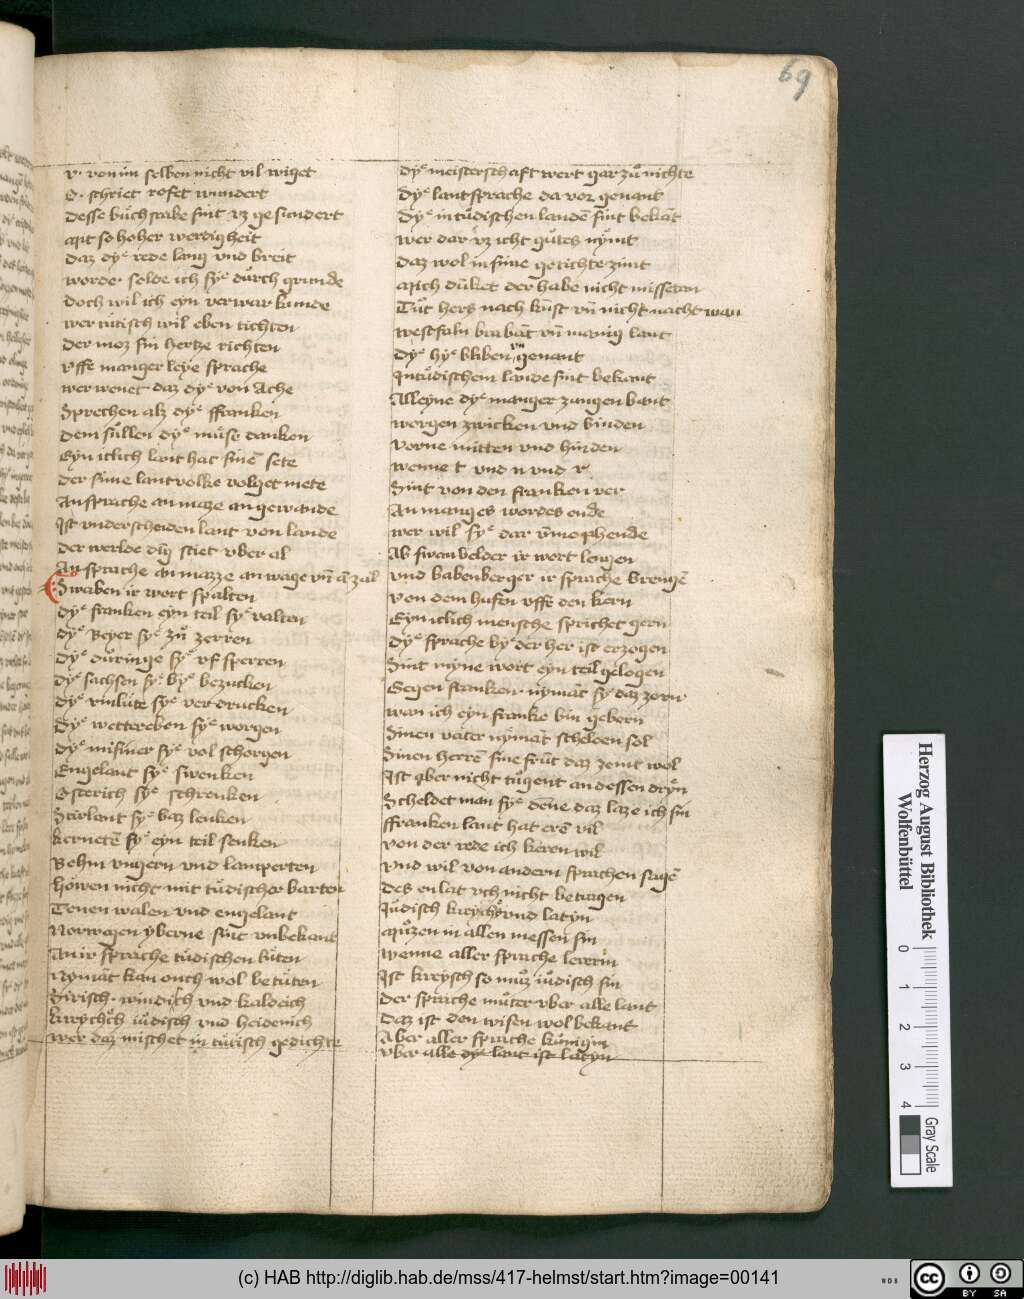 69
v · von im selben nicht vil wiget
O · schriet rofet wundert
Desse buͤchstabe sint vz gesundert
Mit so hoher werdigheit
Daz dyͤ rede lang vnd breit
worde · solde ich syͤ duͤrch grunde
Doch wil ich eyn verwar kunde
wer tutisch wil eben tichten
Der moz sin hertze richten
vffe manger leye sprache
wer wenet daz dyͤ von Ache
Sprechen alz dyͤ ffranken
Dem suͤllen dyͤ muͤse danken
Eyn iclich lant hat sinē sete
Der sime lantvolke volget mete
An sprache an maze an gewande
Ist vnderscheiden lant von lande
Der werlde ding stiet vber al
An sprache an mazze an wage vn̄ ā zal
Swaben ir wort spalten
Dyͤ franken eyn teil syͤ valten
Dyͤ Beyer syͤ zuͤ zerren
Dyͤ duͤringe syͤ vf sperren
Dyͤ sachsen syͤ byͤ bezucken
Dyͤ rinlute syͤ verdrucken
Dyͤ wettereben syͤ worgen
Dyͤ misner syͤ vol schorgen
Engelant syͤ swenken
Osterich syͤ schrenken
Stirlant syͤ baz lenken
kernetē syͤ eyn teil senken
Behm vngern vnd lamperten
howen nicht mit tuͤdischer barten
Tenen walen vnd engelant
Norwegen yberne sint vnbekant
An ir sprache tuͤdischen luͤten
Nymāt kan ouch wol betuͤten
Sirisch · windisch vnd kaldeich
kreychesch iuͤdisch vnd heidenich
wer daz mischet in tuͤtisch gedichte
Dyͤ meisterschaft wert gar zuͤ nichte
Dyͤ lantsprache da vor genant
Dyͤ in tuͤdischen landē sint bekāt
wer dar vz icht guͤtes nymt
Daz wol in sime getichte zimt
Mich duket der habe nicht misseran
Tuͤt hers nach kunst vn̄ nicht nacht wan
westfaln brabāt vn̄ manig lant
Dyͤ hyͤ bliben vn genant
In tuͤdischem lande sint bekant
Alleyne dyͤ manger zungen bant
worgen zwicken vnd binden
vorne mitten vnd hinden
wenne t vnd n vnd r
Sint von den franken ver
An manges wordes ende
wer wil syͤ dar vm̄e phende
Ab swanvelder ir wort lengen
vnd babenberger ir sprache brengē
von dem hufen vffe den kern
Eyn iclich mensche sprichet gern
Dyͤ sprache byͤ der her ist erzogen
Sint myne wort eyn teil gelogen
Gegen franken · nymāt sy daz zorn
wan ich eyn franke bin geborn
Sinen vater nymāt schelden sol
Sinen herrē sine frunt daz zemt wol
Ist aber nicht tuͤgent an dessen dryn
Scheldet man syͤ dēne daz laze ich sin
ffranken lant hat erē vil
von der rede ich keren wil
vnd wil von andern sprachen sagē
Des enlat vch nicht betragen
Juͤdisch kreychs vnd latyn
Muͤzen in allen messen sin
wenne aller sprache lererin
Ist kreysch so muͤz iuͤdisch sin
Der sprache muͤter vber alle lant
Daz ist den wisen wol bekant
Aber aller sprache kuͤnigin
vber alle dyͤ lant ist latyn
Herzog August Bibliothek
Wolfenbüttel
0 1 2 3 4
Gray Scale
(c) HAB http://diglib.hab.de/mss/417-helmst/start.htm?image=00141
WDB
cc
BY SA